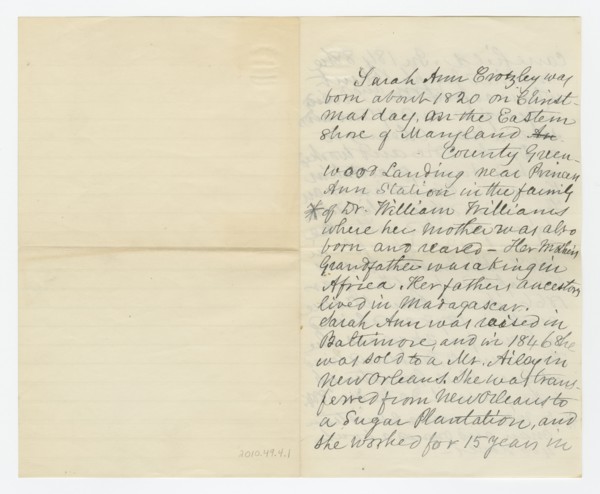 Sarah Ann Crozley was
born about 1820 on Christ-
mas day, on the Eastern
Shore of Maryland An
County Green-
wood Landing near Princess
Ann Station in the family
* of Dr. William Williams
where her mother was also
born and reared – Her Mothers
Grandfather was a King in
Africa. Her fathers ancestors
lived in Madagascar.
Sarah Ann was raised in
Baltimore, and in 1846 she
was sold to a Mr. in
New Orleans. She was trans-
ferred from New Orleans to
a Sugar Plantation, and
she worked for 15 years in
2010.49.4.1